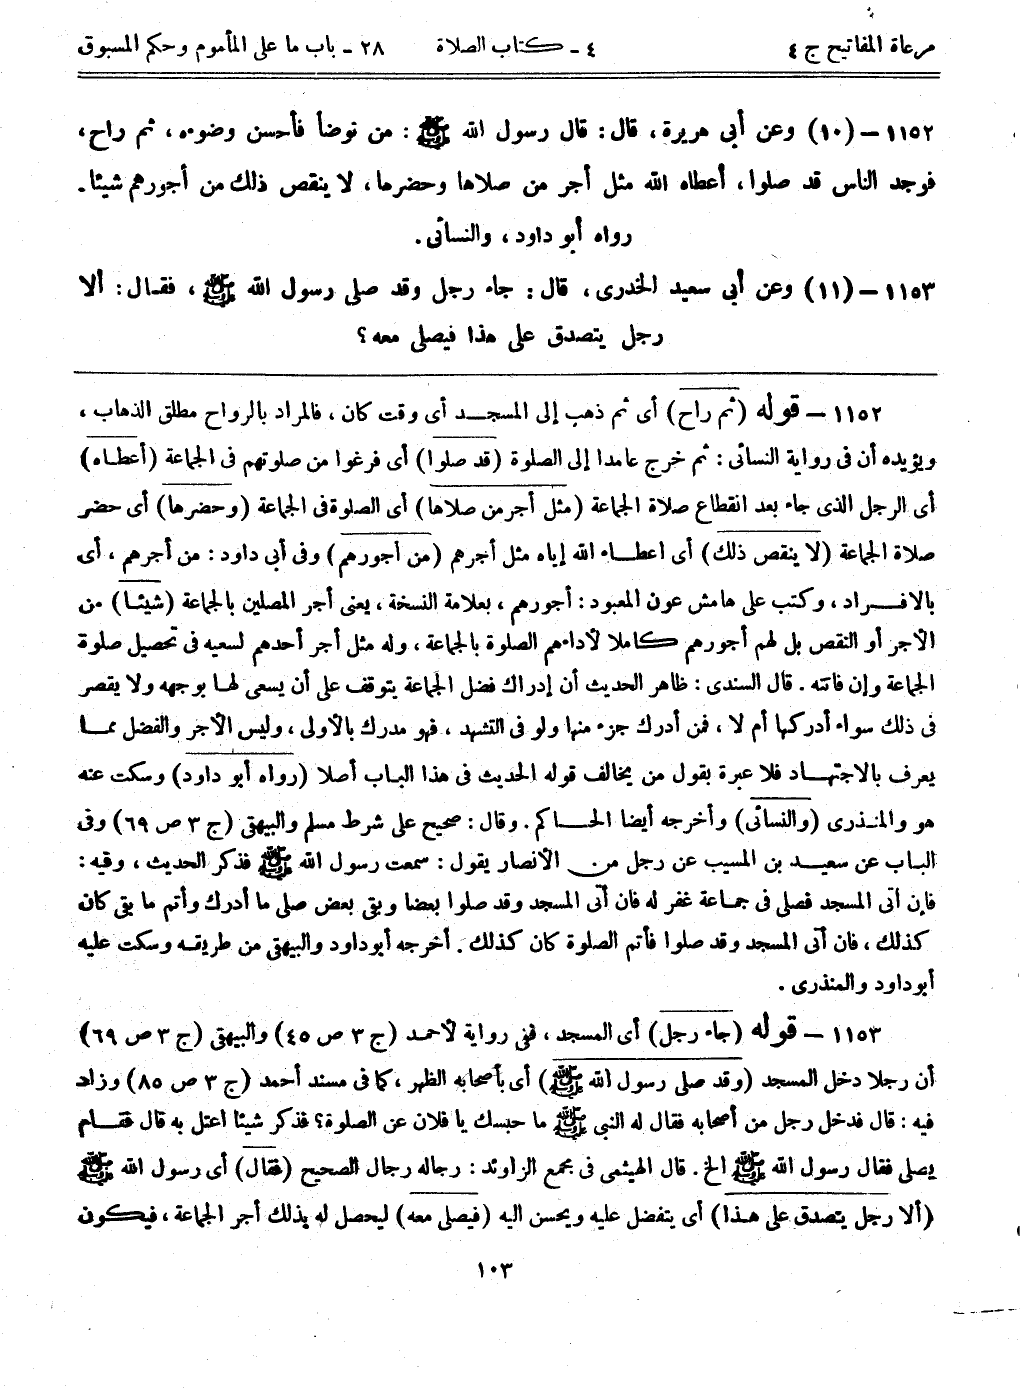 مرعاة المفاتيح ج ٤ ٤ ـ كتاب الصلاة ٢٨ ـ باب ما على المأموم وحكم المسبوق
١١٥٢ ـ (١٠) وعن أبى هريرة، قال: قال رسول الله ﷺ: من توضأ فأحسن وضوءه، ثم راح،
فوجد الناس قد صلوا، أعطاه الله مثل أجر من صلاها وحضرها، لا ينقص ذلك من أجورهم شيئا.
رواه أبو داود، والنسائى.
١١٥٣ ـ (١١) وعن أبى سعيد الخدرى، قال: جاء رجل وقد صلى رسول الله ﷺ، فقال: ألا
رجل يتصدق على هذا فيصلى معه؟
١١٥٢ ـ قوله (ثم راح) أى ثم ذهب إلى المسجد أى وقت كان، فالمراد بالرواح مطلق الذهاب،
ويؤيده أن فى رواية النسائى: ثم خرج عامدا إلى الصلوة (قد صلوا) أى فرغوا من صلوتهم فى الجماعة (أعطاه)
أى الرجل الذى جاء بعد انقطاع صلاة الجماعة (مثل أجر من صلاها) أى الصلوة فى الجماعة (وحضرها) أى حضر
صلاة الجماعة (لا ينقص ذلك) أى اعطاء الله إياه مثل أجرهم (من أجورهم) وفى أبى داود: من أجرهم، أى
بالافراد، وكتب على هامش عون المعبود: أجورهم، بعلامة النسخة، يعنى أجر المصلين بالجماعة (شيئا) من
الأجر أو النقص بل لهم أجورهم كاملا لأداءهم الصلوة بالجماعة، وله مثل أجر أحدهم لسعيه فى تحصيل صلوة
الجماعة وإن فاتته. قال السندى: ظاهر الحديث أن إدراك فضل الجماعة يتوقف على أن يسعى لها بوجهه ولا يقصر
فى ذلك سواء أدركها أم لا، فمن أدرك جزء منها ولو فى التشهد، فهو مدرك بالأولى، وليس الأجر والفضل مما
يعرف بالاجتهاد فلا عبرة بقول من يخالف قوله الحديث فى هذا الباب أصلا (رواه أبو داود) وسكت عنه
هو والمنذرى (والنسائى) وأخرجه أيضا الحاكم. وقال: صحيح على شرط مسلم والبيهقى (ج ٣ ص ٦٩) وفى
الباب عن سعيد بن المسيب عن رجل من الأنصار يقول: سمعت رسول الله ﷺ فذكر الحديث، وفيه:
فإن أتى المسجد فصلى فى جماعة غفر له فان أتى المسجد وقد صلوا بعضا وبقى بعض صلى ما أدرك وأتم ما بقى كان
كذلك، فان أتى المسجد وقد صلوا فأتم الصلوة كان كذلك. أخرجه أبوداود والبيهقى من طريقه وسكت عليه
أبوداود والمنذرى.
١١٥٣ ـ قوله (جاء رجل) أى المسجد، ففى رواية لأحمد (ج ٣ ص ٤٥) والبيهقى (ج ٣ ص ٦٩)
أن رجلا دخل المسجد (وقد صلى رسول الله ﷺ) أى بأصحابه الظهر، كما فى مسند أحمد (ج ٣ ص ٨٥) وزاد
فيه: قال فدخل رجل من أصحابه فقال له النبى ﷺ ما حبسك يا فلان عن الصلوة؟ فذكر شيئا اعتل به قال فقام
يصلى فقال رسول الله ﷺ الخ. قال الهيثمى فى مجمع الزاوئد: رجاله رجال الصحيح (فقال) أى رسول الله ﷺ
(ألا رجل يتصدق على هذا) أى يتفضل عليه ويحسن اليه (فيصلى معه) ليحصل له بذلك أجر الجماعة، فيكون
١٠٣